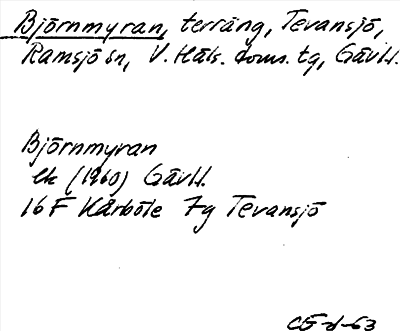 Björnmyran, terräng, Tevansjö,
Ramsjö sn, V. Häls. doms. tg, GävlL.
Björnmyran
Ek (1960) GävlL.
16F Kårböle 7g Tevansjö